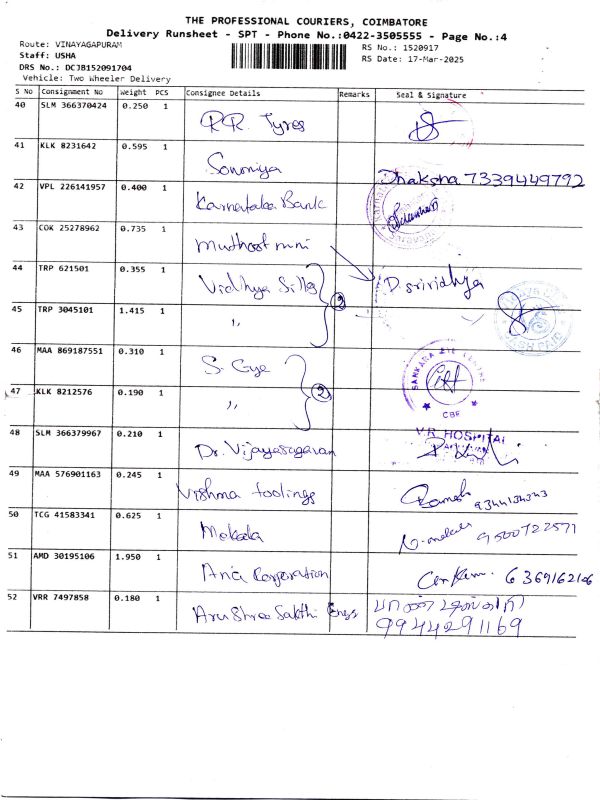 THE PROFESSIONAL COURIERS, COIMBATORE
Delivery Runsheet - SPT - Phone No.:0422-3505555 - Page No.:4
Route: VINAYAGAPURAM
RS No.: 1520917
Staff: USHA
RS Date: 17-Mar-2025
DRS No.: DCJB152091704
Vehicle: Two Wheeler Delivery
S No Consignment No Weight PCS Consignee Details Remarks Seal & Signature
40 SLM 366370424 0.250 1 R.R. Tyres
41 KLK 8231642 0.595 1 Dhaksha 7339449792
42 VPL 226141957 0.400 1 Karnataka Bank
43 COK 25278962 0.735 1 muthoot mini
44 TRP 621501 0.355 1 Vidhya Silks 2 D. srividhya
45 TRP 3045101 1.415 1 "
46 MAA 869187551 0.310 1 S. Eye SANKARA EYE CENTRE CBE
47 KLK 8212576 0.190 1 " 2
48 SLM 366379967 0.210 1 Dr. Vijayaragavan V.R. HOSPITAL
49 MAA 576901163 0.245 1 Vishma toolings Ramesh
50 TCG 41583341 0.625 1 Mekala N. mekala 9500722571
51 AMD 30195106 1.950 1 Aria Corporation
52 VRR 7497858 0.180 1 Aru Shree Sakthi Engs 9944291169